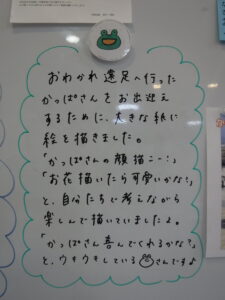 おわかれ遠足へ行った
かっぱさんをお出迎え
するために、大きな紙に
絵を描きました。
「かっぱさんの顔描こ〜！」
「お花描いたら可愛いかな？」
と、自分たちで考えながら
楽しんで描いていましたよ。
「かっぱさん喜んでくれるかな？」
と、ウキウキしている さんですよ